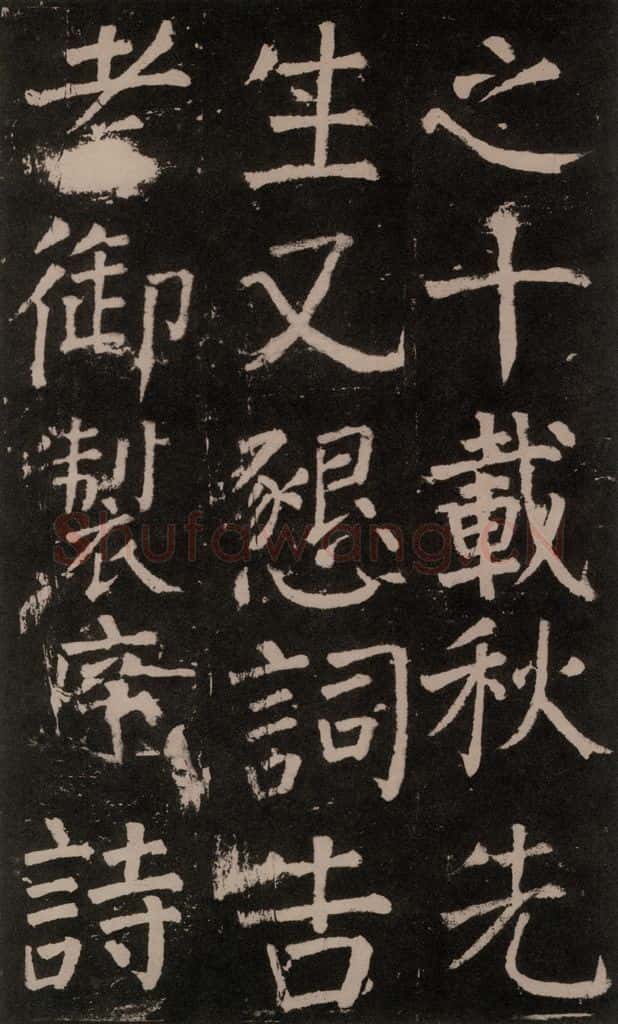 之十載秋先
生又懇詞告
老御製序詩
Shufawang.CN